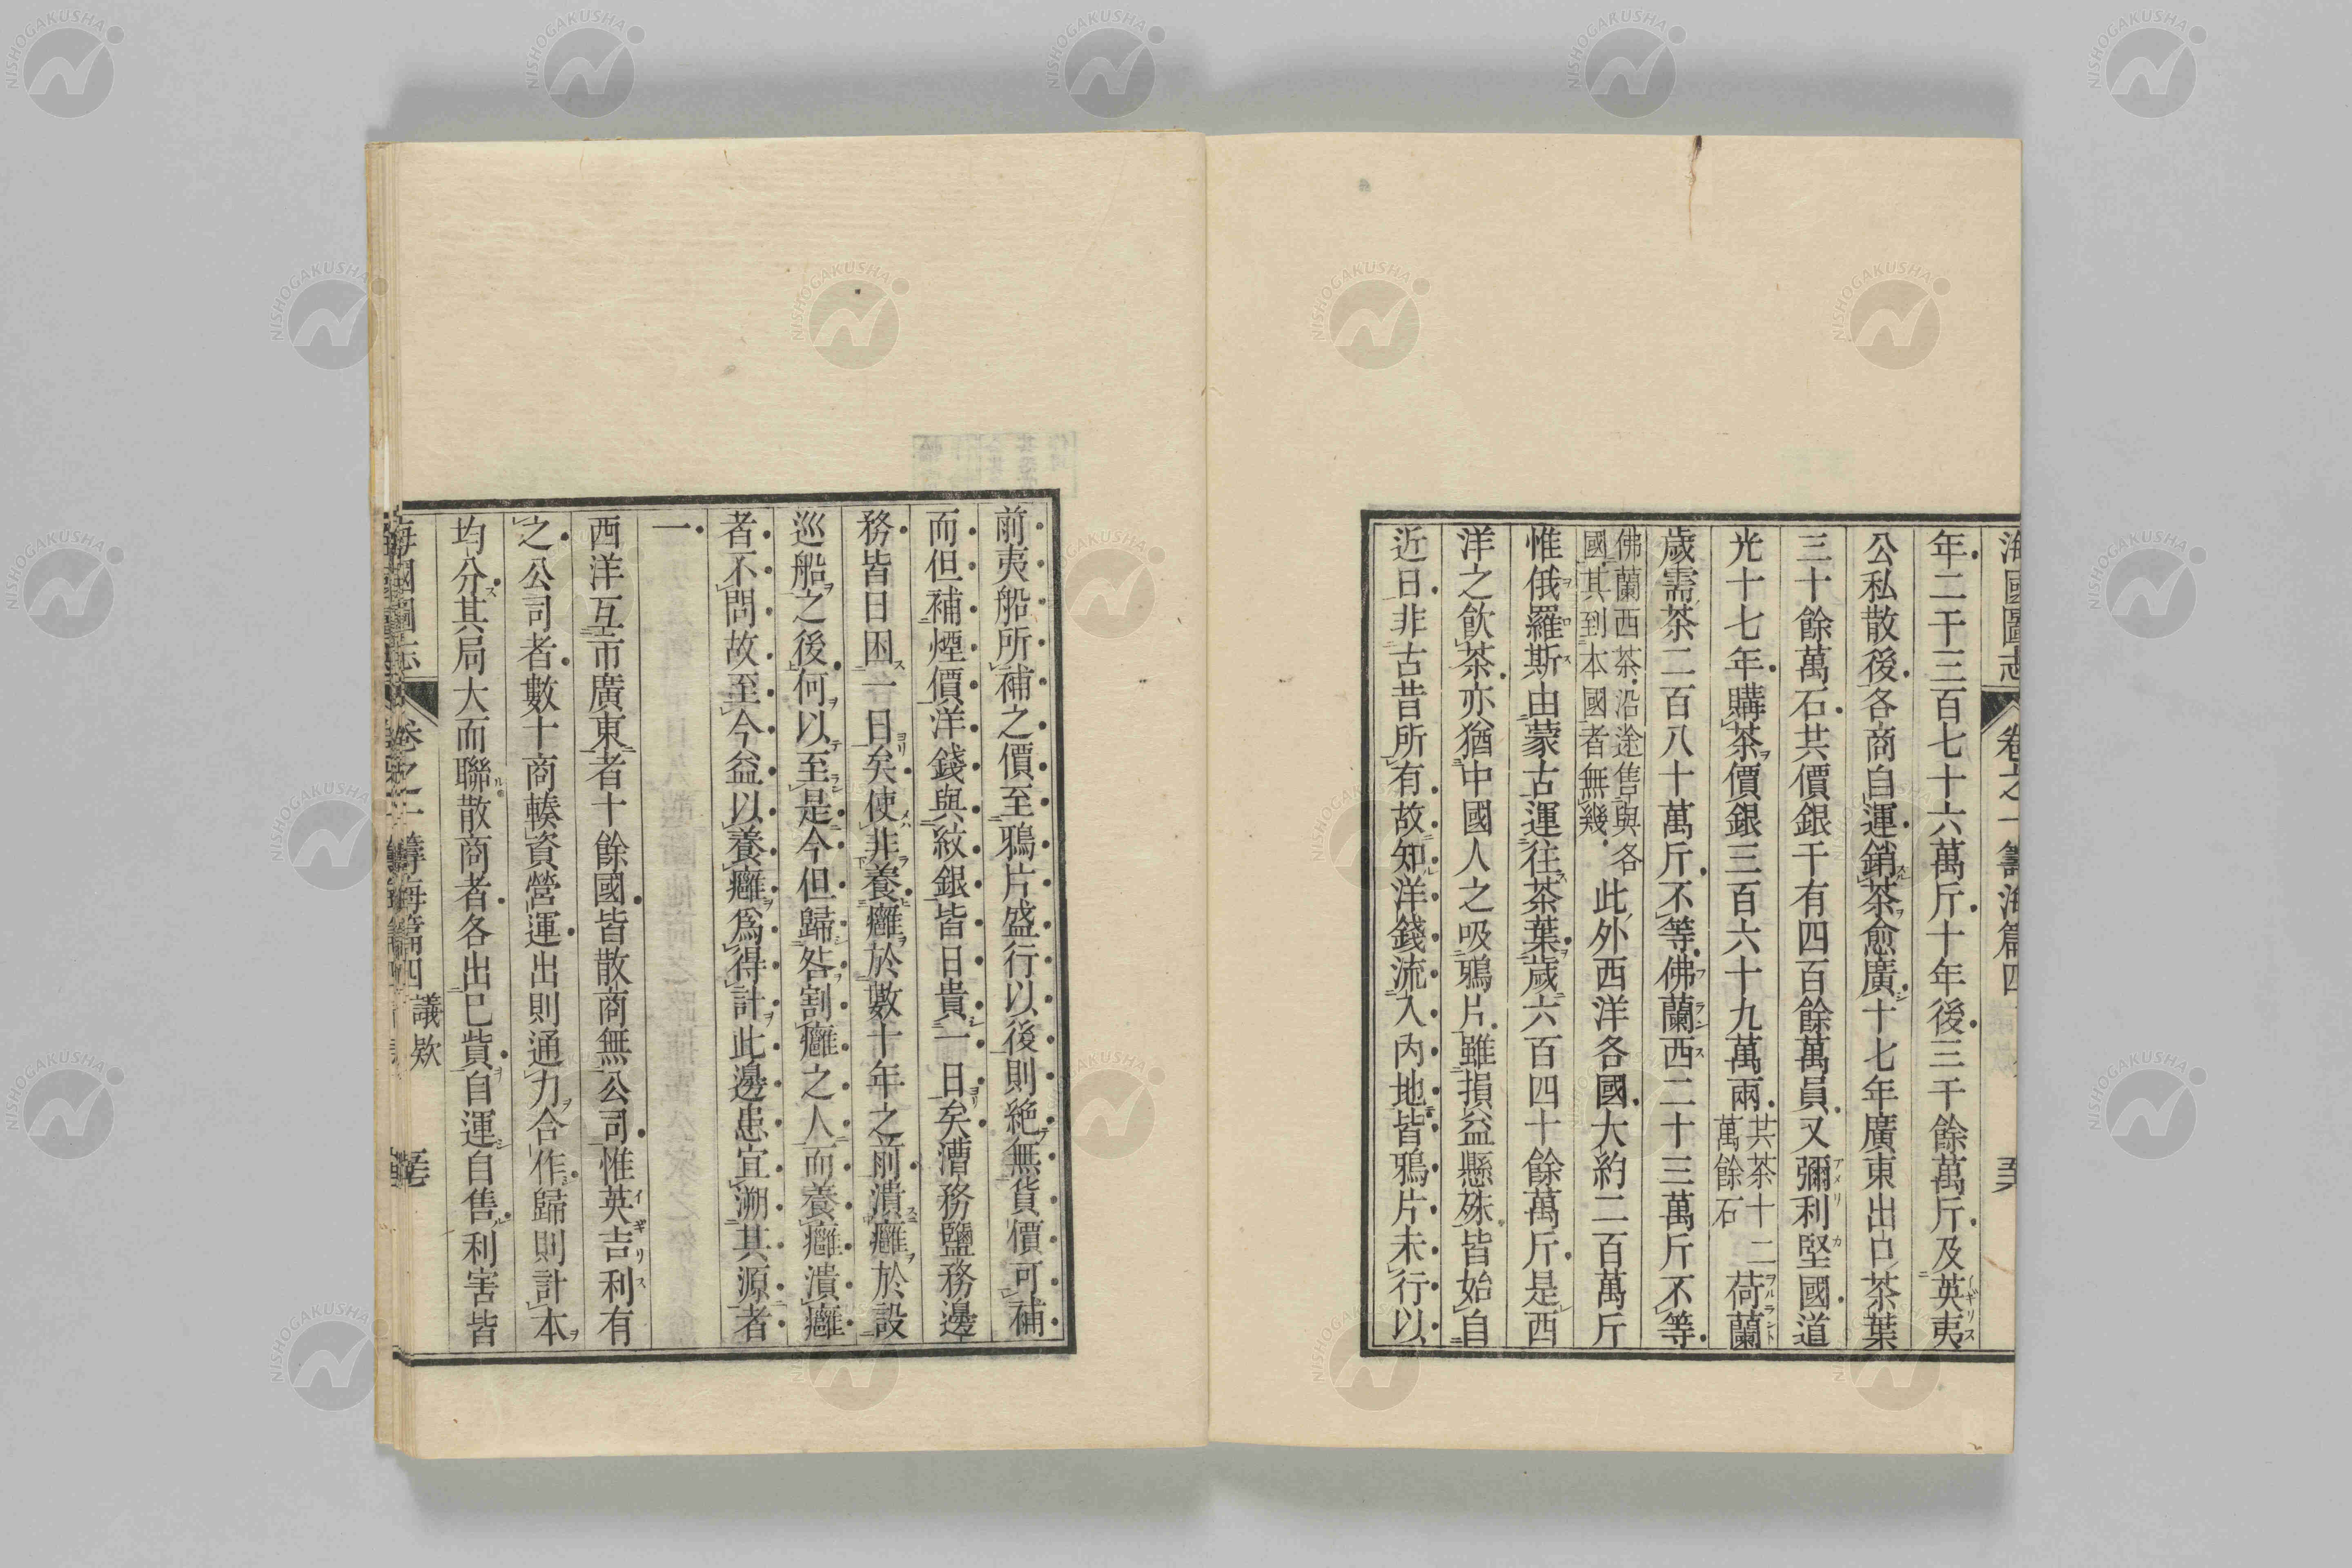 海國圖志 卷之一 籌海篇四
年二千三百七十六萬斤十年後三千餘萬斤及英夷
公私散後各商自運銷茶愈廣十七年廣東出口茶葉
三十餘萬石共價銀千有四百餘萬員又彌利堅國道
光十七年購茶價銀三百六十九萬兩共茶十二萬餘石荷蘭
歲需茶二百八十萬斤不等佛蘭西二十三萬斤不等
佛蘭西茶沿途售與各國其到本國者無幾此外西洋各國大約二百萬斤
惟俄羅斯由蒙古運往茶葉歲六百四十餘萬斤是西
洋之飲茶亦猶中國人之吸鴉片雖損益懸殊皆始自
近日非古昔所有故知洋錢流入內地皆鴉片未行以
前夷船所補之價至鴉片盛行以後則絶無貨價可補
而但補煙價洋錢與紋銀皆日貴一日矣漕務鹽務邊
務皆日困一日矣使非養癰於數十年之前潰癰於設
巡船之後何以至是今但歸咎割癰之人而養癰潰癰
者不問故至今益以養癰爲得計此邊患宜溯其源者
一
西洋互市廣東者十餘國皆散商無公司惟英吉利有
之公司者數十商輳資營運出則通力合作歸則計本
均分其局大而聯散商者各出已貲自運自售利害皆
海國圖志 卷之一 籌海篇四 議欵